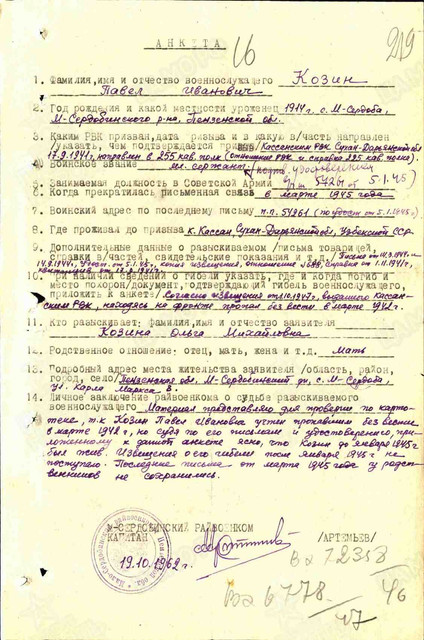 16
219
АНКЕТА
1. Фамилия,имя и отчество военнослужащего Козин
Павел Иванович
2. Год рождения и какой местности уроженец 1914г. с. М-Сердоба,
М-Сердобинского р-на, Пензенской обл.
3. Каким РВК призван,дата призыва и в какую в/часть направлен
/указать, чем подтверждается призыв/ Кассанским РВК Сурхан-Дарьинской обл
17.9.1941г, направлен в 255 кав. полк (отношение РВК и справка 225 кав. полка).
4. Воинское звание мл. сержант /подтв. удостоверением
5. Занимаемая должность в Советской Армии 5426 от 5.1.45)
6. Когда прекратилась письменная связь в марте 1945 года
7. Воинский адрес по последнему письму п.п. 54961 (по удост от 5.1.1945г.)
8. Где проживал до призыва к. Кассан Сурхан-Дарьинской обл, Узбекской ССР
9. Дополнительные данные о разыскиваемом /письма товарищей,
справки в/частей, свидетельские показания и т.д./
10. Наличие сведений о гибели указать, где и когда погиб и
место похорон/документ, подтверждающий гибель военнослужащего,
приложить к анкете/ Согласно извещения от 2.10.1947г, выданного Кассан-
ским РВК, находясь на фронте пропал без вести в марте 1942г.
11. Кто разыскивает: фамилия, имя и отчество заявителя
Козина Ольга Михайловна
12. Родственное отношение: отец, мать, жена и т.д. Мать
13. Подробный адрес места жительства заявителя /область, район,
город, село/ Пензенская обл, М-Сердобинский р-н, с. М-Сердоба,
ул. Карла Маркса
14. Личное заключение райвоенкома о судьбе разыскиваемого
военнослужащего Материал представляю для проверки по карто-
теке, т.к Козин Павел Иванович учтен пропавшим без вести
в марте 1942г, но судя по его письмам и удостоверению, при-
ложенному к данной анкете ясно, что Козин до января 1945г
был жив. Извещения о его гибели после января 1945г не
поступало. Последние письма от марта 1945 года у родст-
венников не сохранились.
М-СЕРДОБИНСКИЙ РАЙВОЕНКОМ
КАПИТАН /АРТЕМЬЕВ/
19.10.1962г.
Вх 72358
Вх 6778
46
47